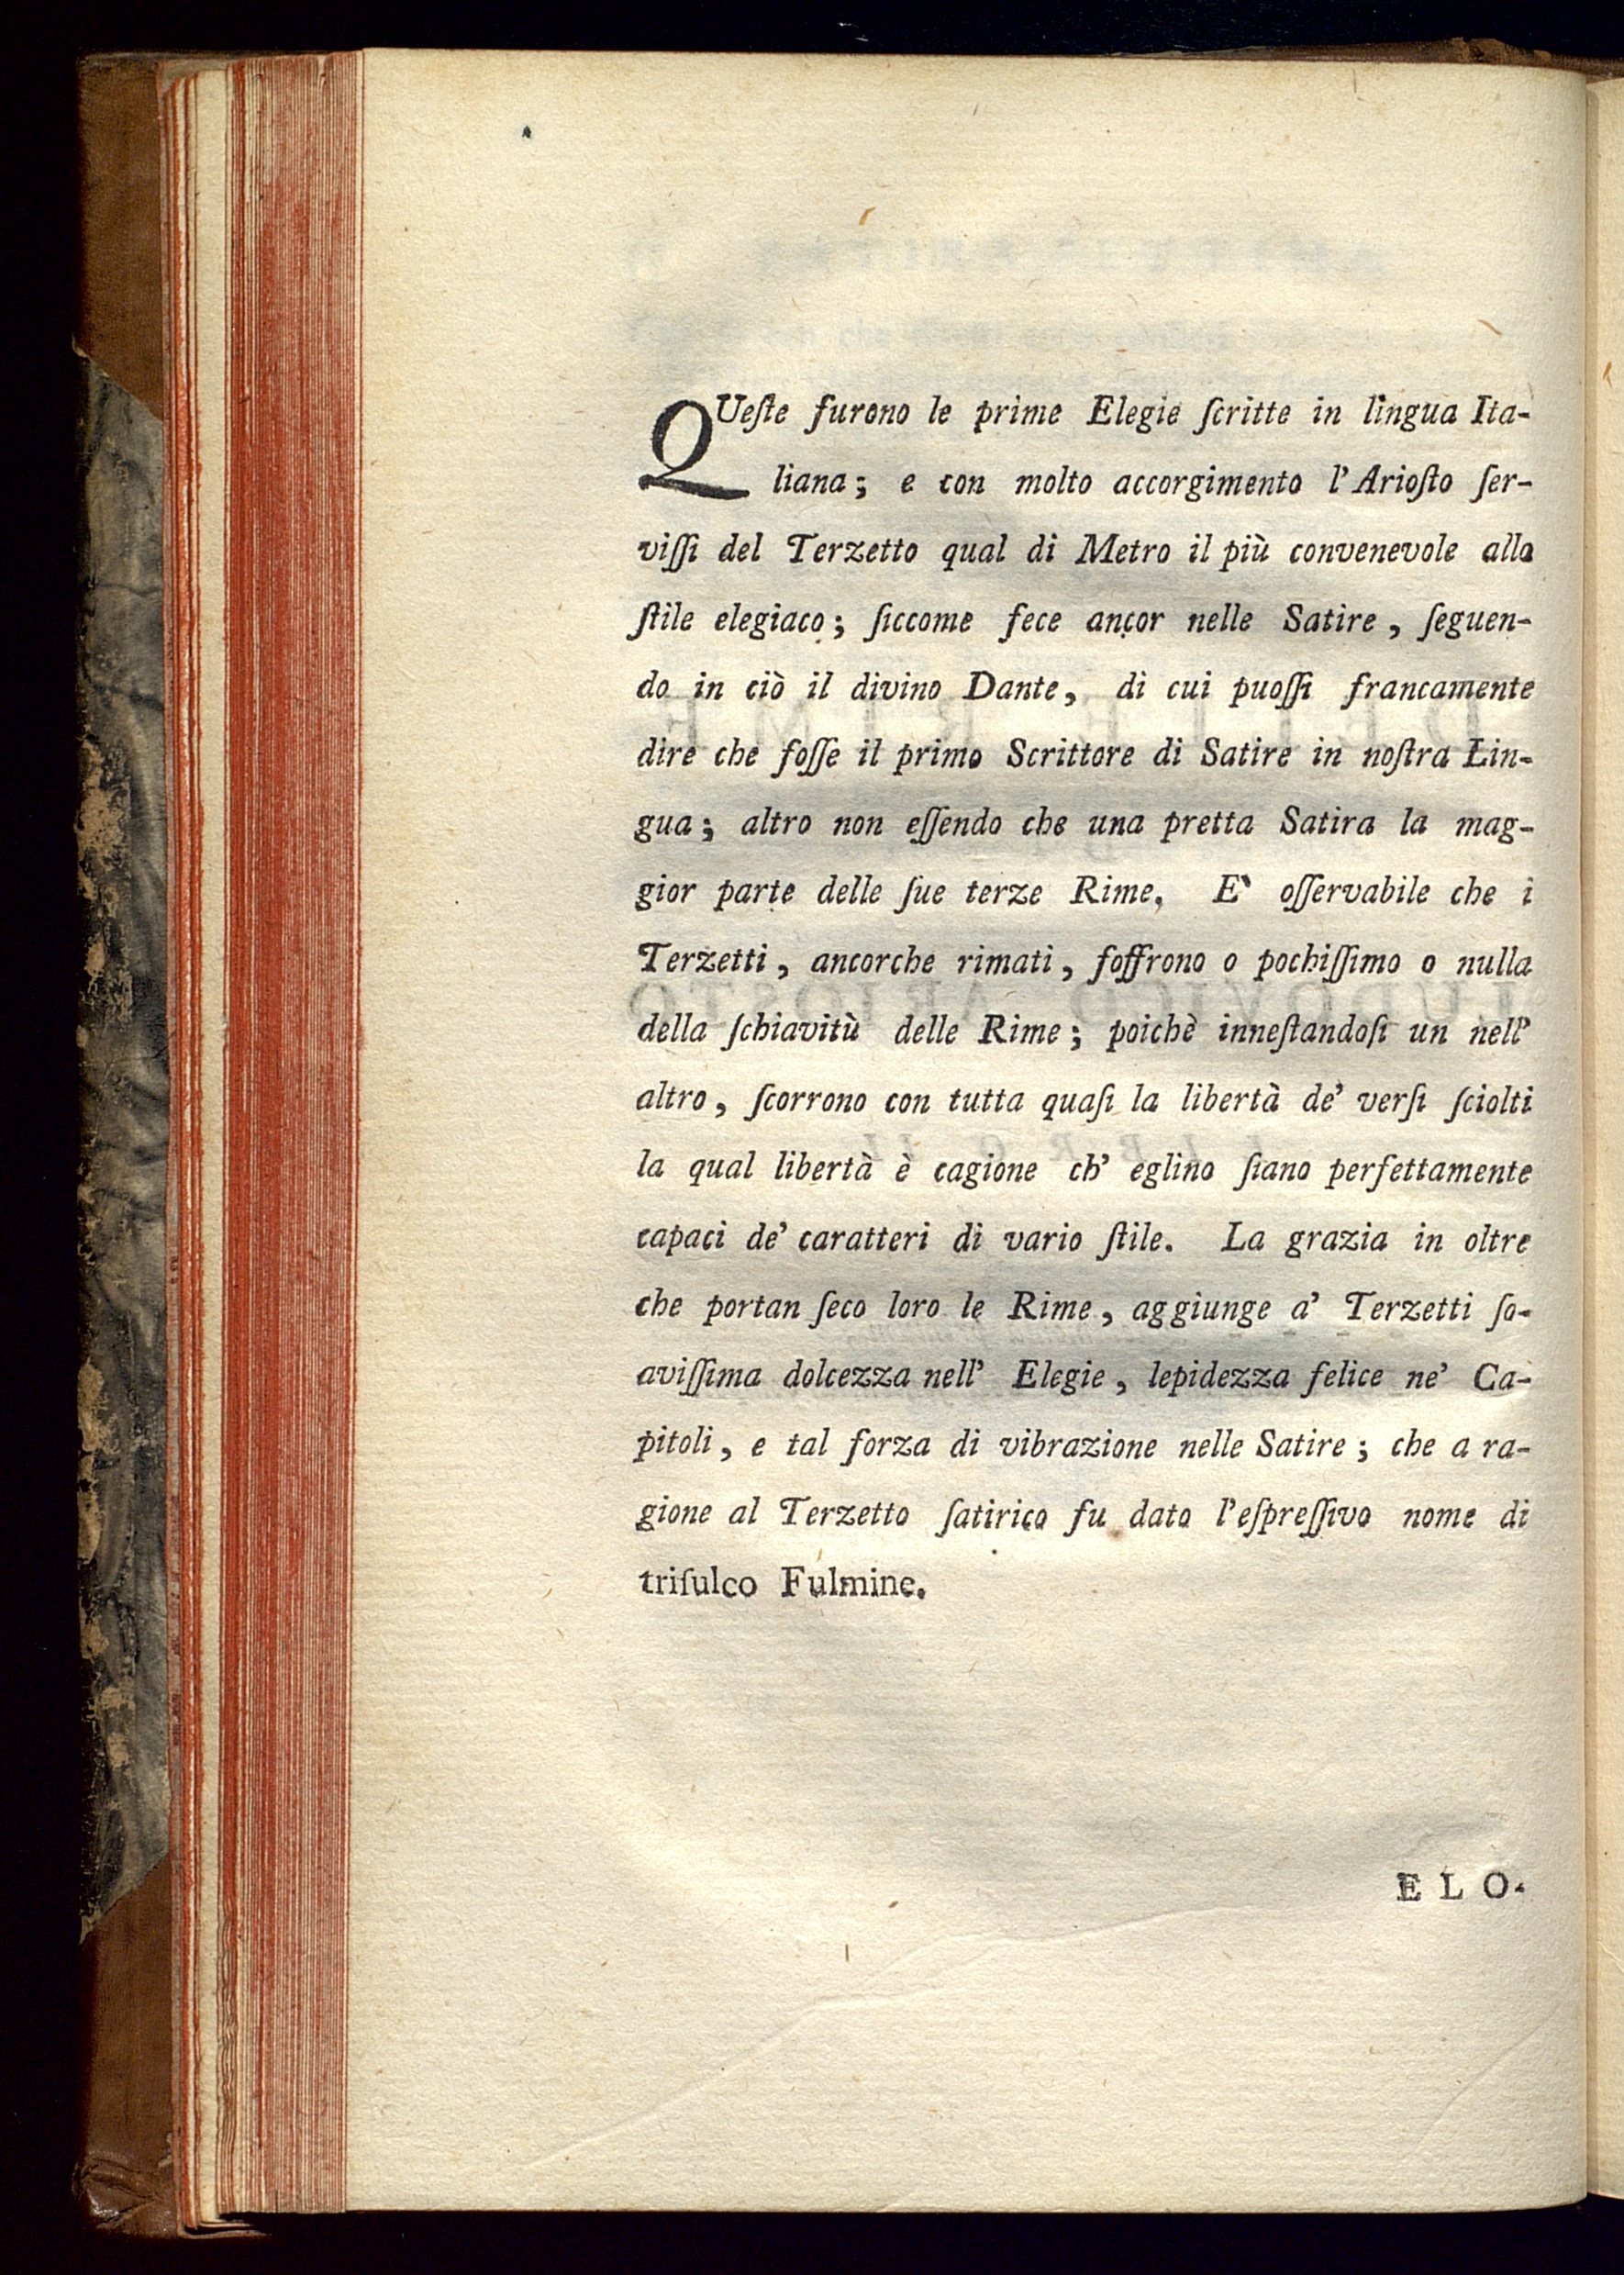 QUeſte furono le prime Elegie ſcritte in lingua Ita-
liana; e con molto accorgimento l' Arioſto ſer-
viſſi del Terzetto qual di Metro il più convenevole alla
ſtile elegiaco; ſiccome fece ancor nelle Satire, ſeguen-
do in ciò il divino Dante, di cui puoſſi francamente
dire che foſſe il primo Scrittore di Satire in noſtra Lin-
gua; altro non eſſendo che una pretta Satira la mag-
gior parte delle ſue terze Rime. E' oſſervabile che i
Terzetti, ancorche rimati, ſoffrono o pochiſſimo o nulla
della ſchiavitù delle Rime; poichè inneſtandoſi un nell'
altro, ſcorrono con tutta quaſi la libertà de' verſi ſciolti
la qual libertà è cagione ch' eglino ſiano perfettamente
capaci de' caratteri di vario ſtile. La grazia in oltre
che portan ſeco loro le Rime, aggiunge a' Terzetti ſo-
aviſſima dolcezza nell' Elegie, lepidezza felice ne' Ca-
pitoli, e tal forza di vibrazione nelle Satire; che a ra-
gione al Terzetto ſatirico fu dato l'eſpreſſivo nome di
triſulco Fulmine.
ELO-